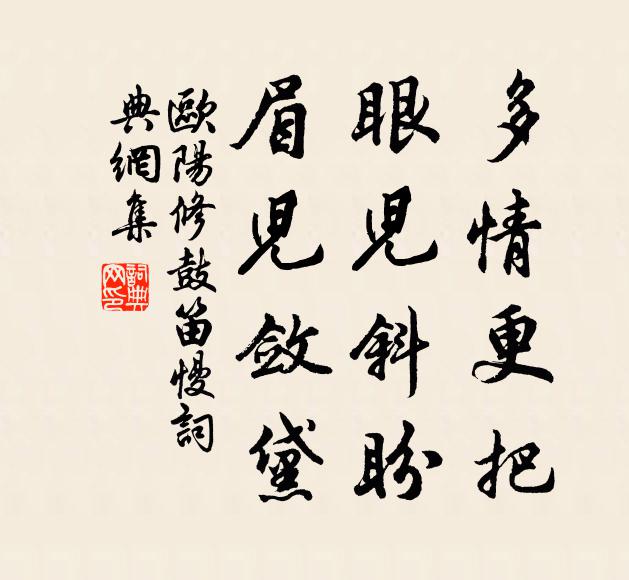 多情更把
眼児斜盼
眉児斂黛
歐陽修鼓笛慢詞
典網集
詞典網印